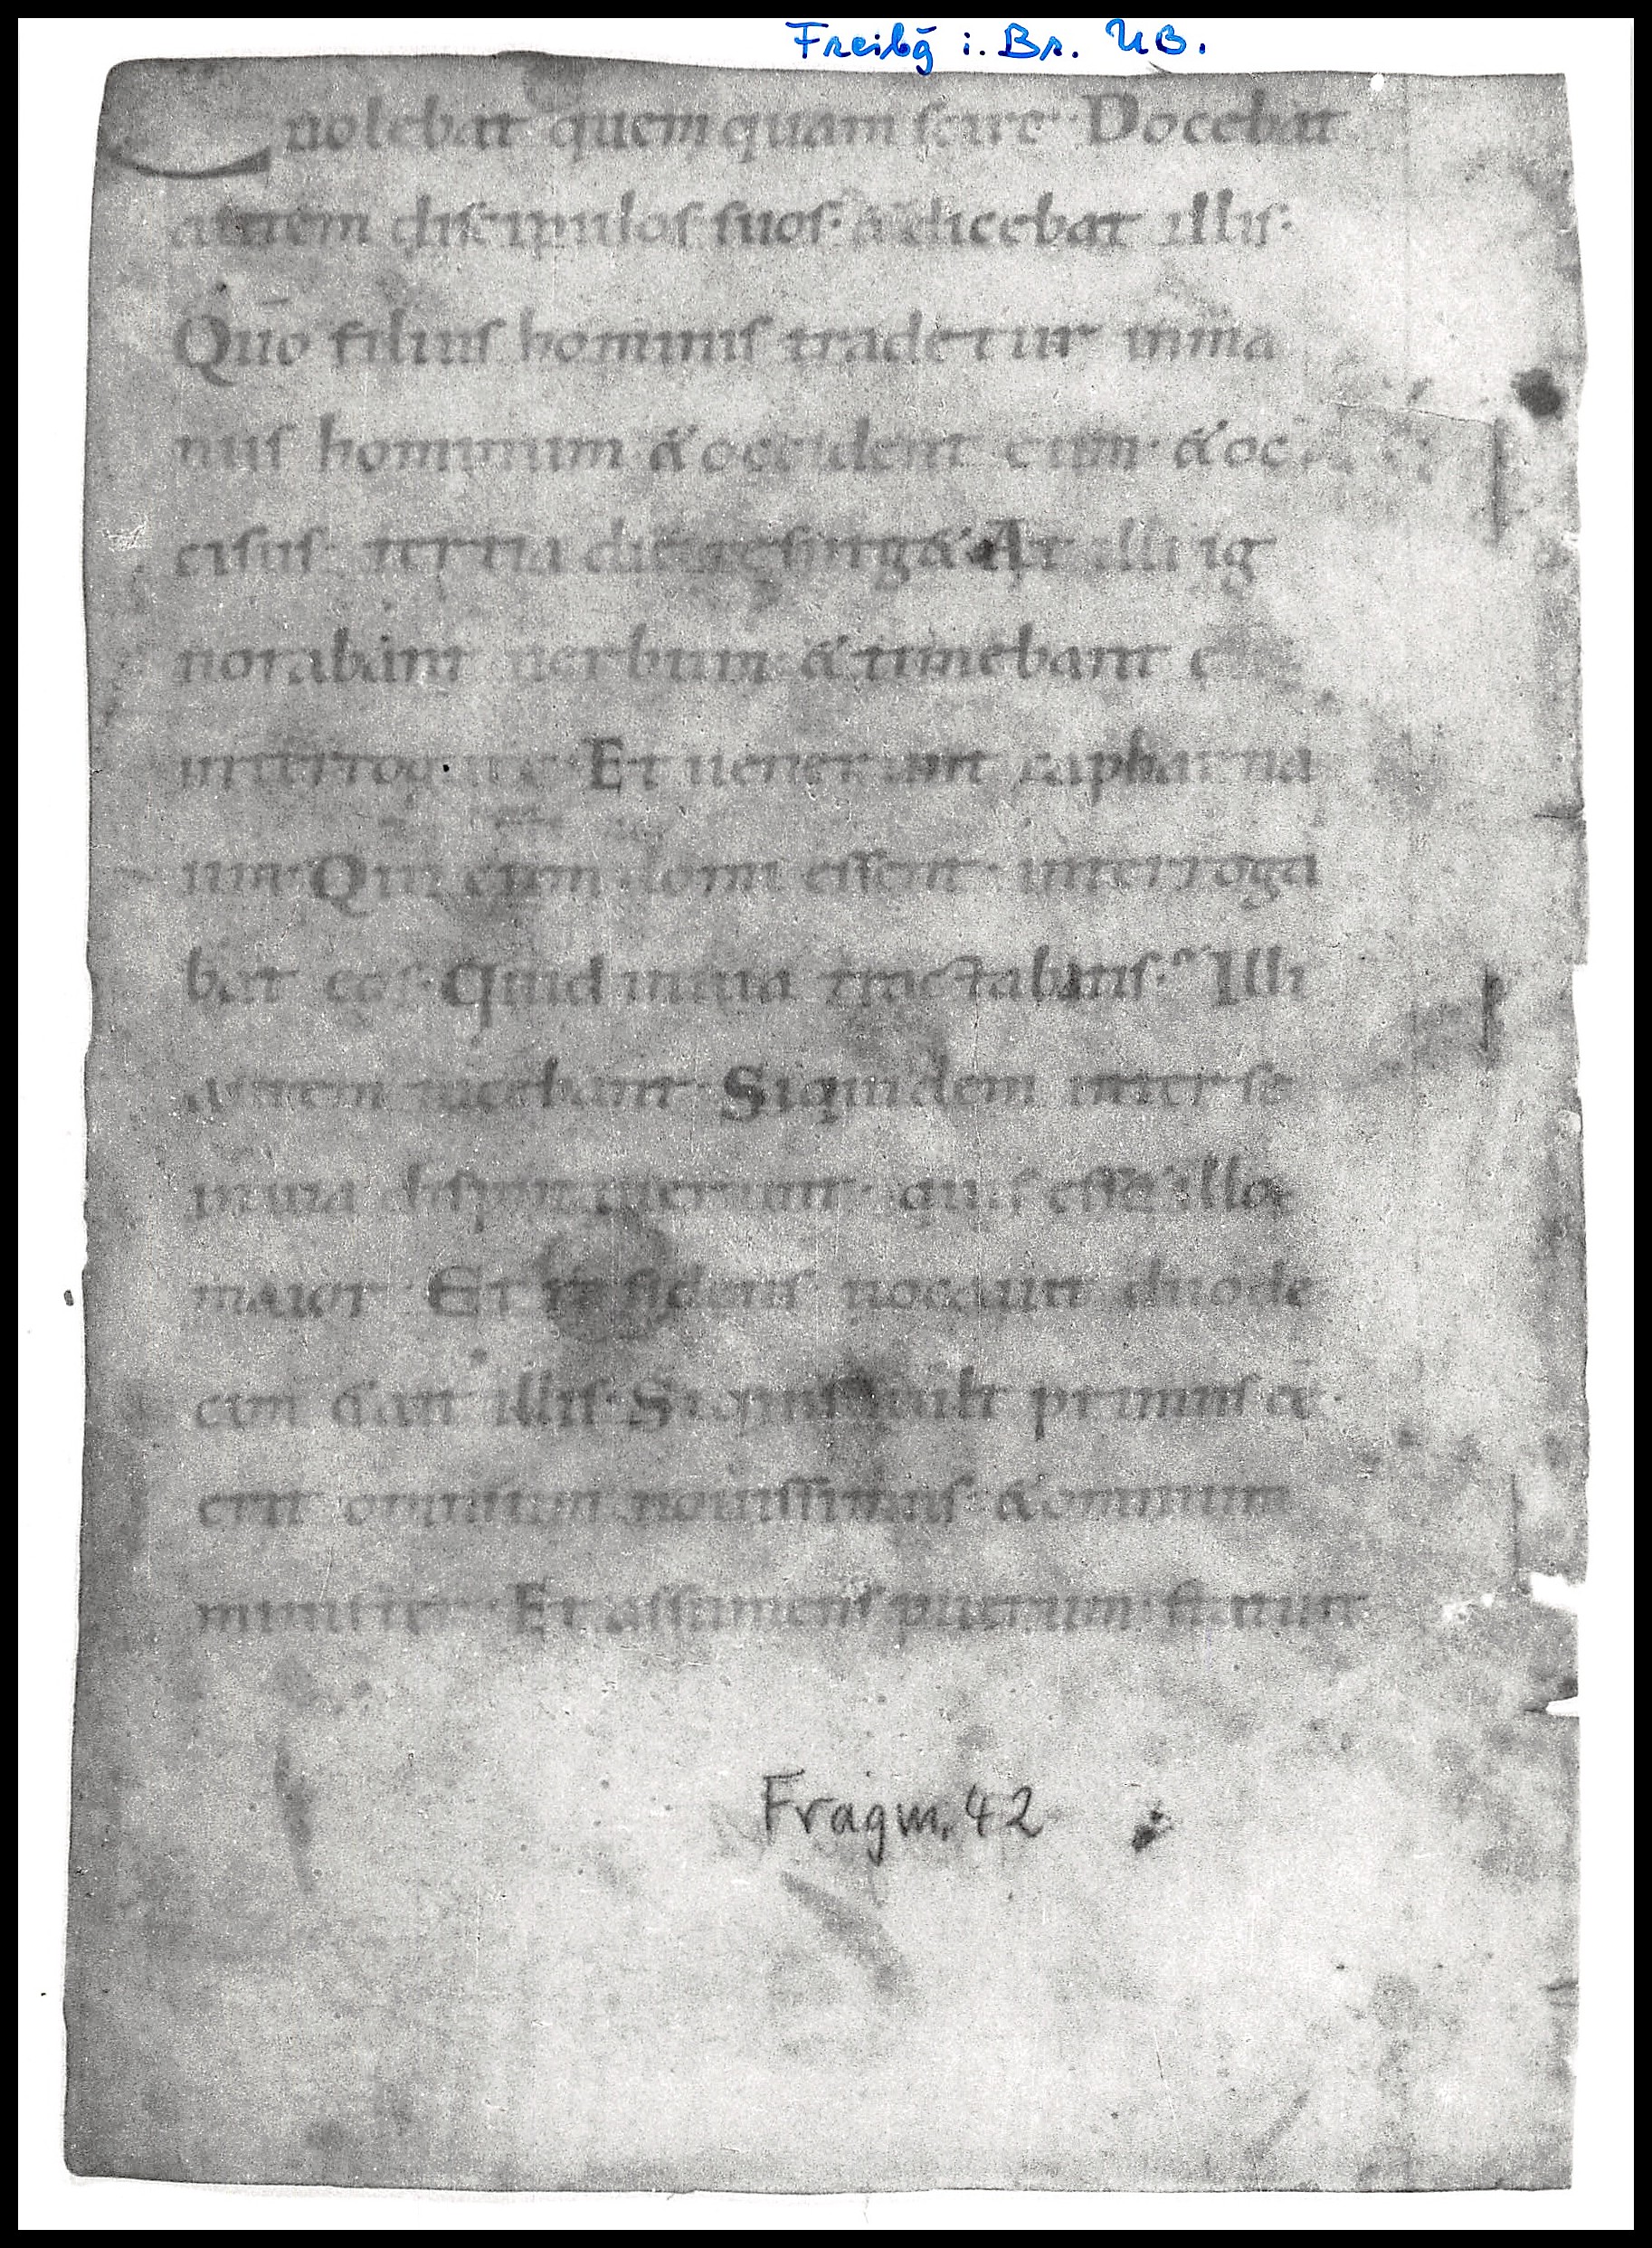 Freibg̅ i. Br. UB.
nolebat quemquam scire. Docebat
autem discipulos suos. & dicebat illis.
Quō filius hominis tradetur inma
nus hominum & occident eum. & oc
cisus tertia die resurg&. At illi ig
norabant uerbum. & timebant
interrogare. Et uenerunt capharna
um. Qui cum domi essent interroga
bat eos. Quid inuia tractabatis? Illi
autem tacebant. Siquidem inter se
inuia disputauerunt. quis ess& illoꝝ
maior. Et residens uocauit duode
cim & ait illis. Siquis uult primus ēē.
erit omnium nouissimus. & omnium
minister. Et assumens puerum. statuit
Fragm. 42